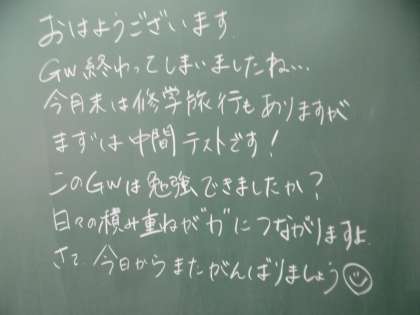 おはようございます
GW終わってしまいましたね…
今月末は修学旅行もありますが
まずは中間テストです!
このGWは勉強できましたか?
日々の積み重ねが"力"につながりますよ
さて、今日からまたがんばりましょう☺